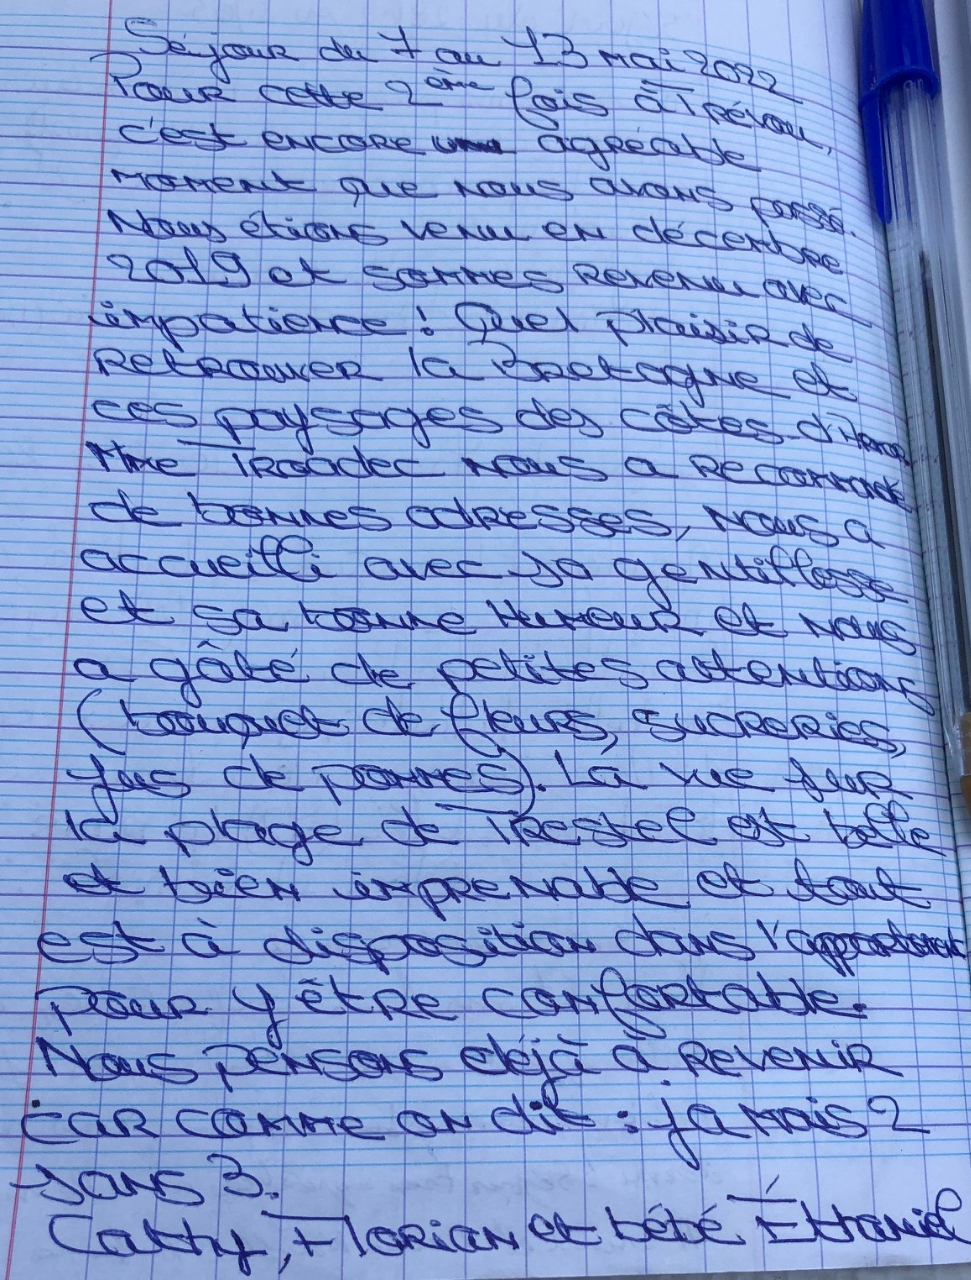 Séjour du 7 au 13 mai 2022
Pour cette 2ème fois à Trévou,
c'est encore un agréable
moment que nous avons passé.
Nous étions venu en décembre
2019 et sommes revenu avec
impatience ! Quel plaisir de
retrouver la Bretagne et
ces paysages des côtes d'Armor
Mme Troadec nous a recommandé
de bonnes adresses, nous a
accueilli avec sa gentillesse
et sa bonne humeur et nous
a gâté de petites attentions
(bouquet de fleurs, sucreries,
jus de pommes). La vue sur
la plage de Trestel est belle
et bien imprenable et tout
est à disposition dans l'appartement
pour y être confortable.
Nous pensons déjà à revenir
car comme on dit : jamais 2
sans 3.
Cathy, Florian et bébé Éthaniel